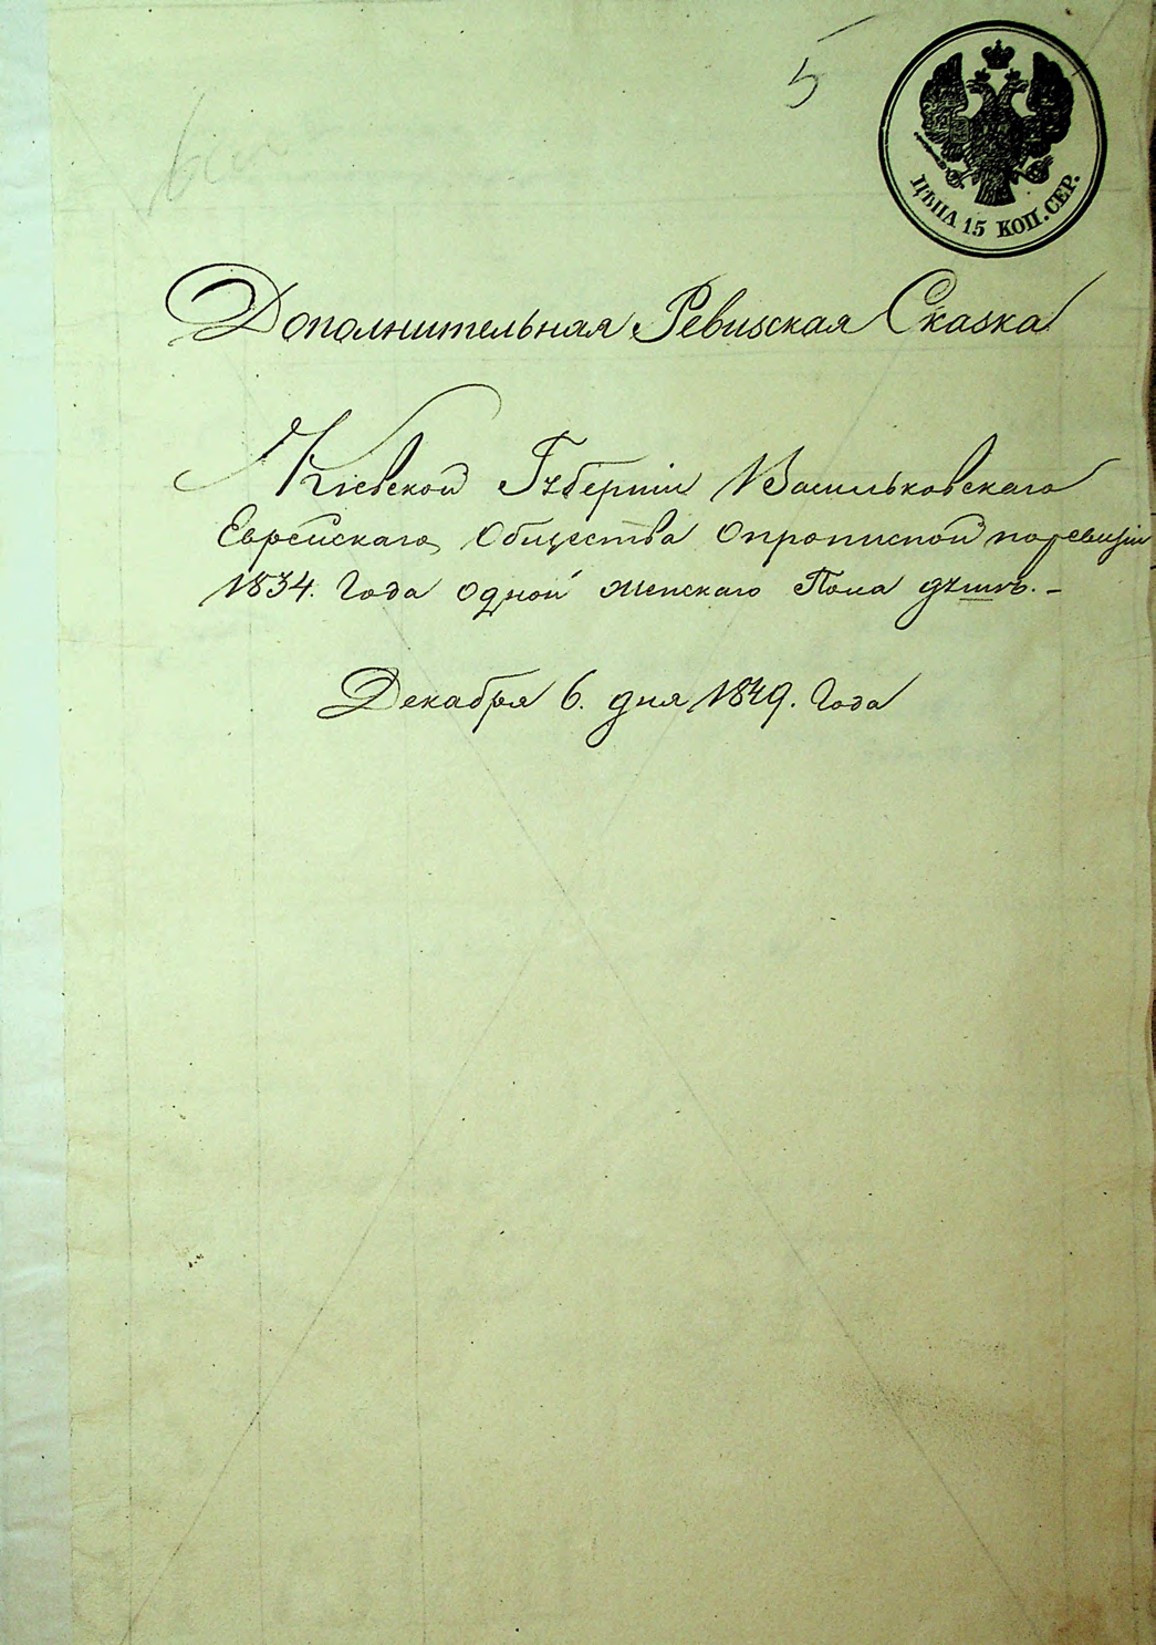 5
ЦѢНА 15 КОП. СЕР.
Дополнительная Ревизская Сказка
Кіевской Губерніи Васильковскаго
Еврейскаго Общества Опрописной поревизіи
1834. Года одной женскаго Пола душъ. -
Декабря 6. дня 1849. Года